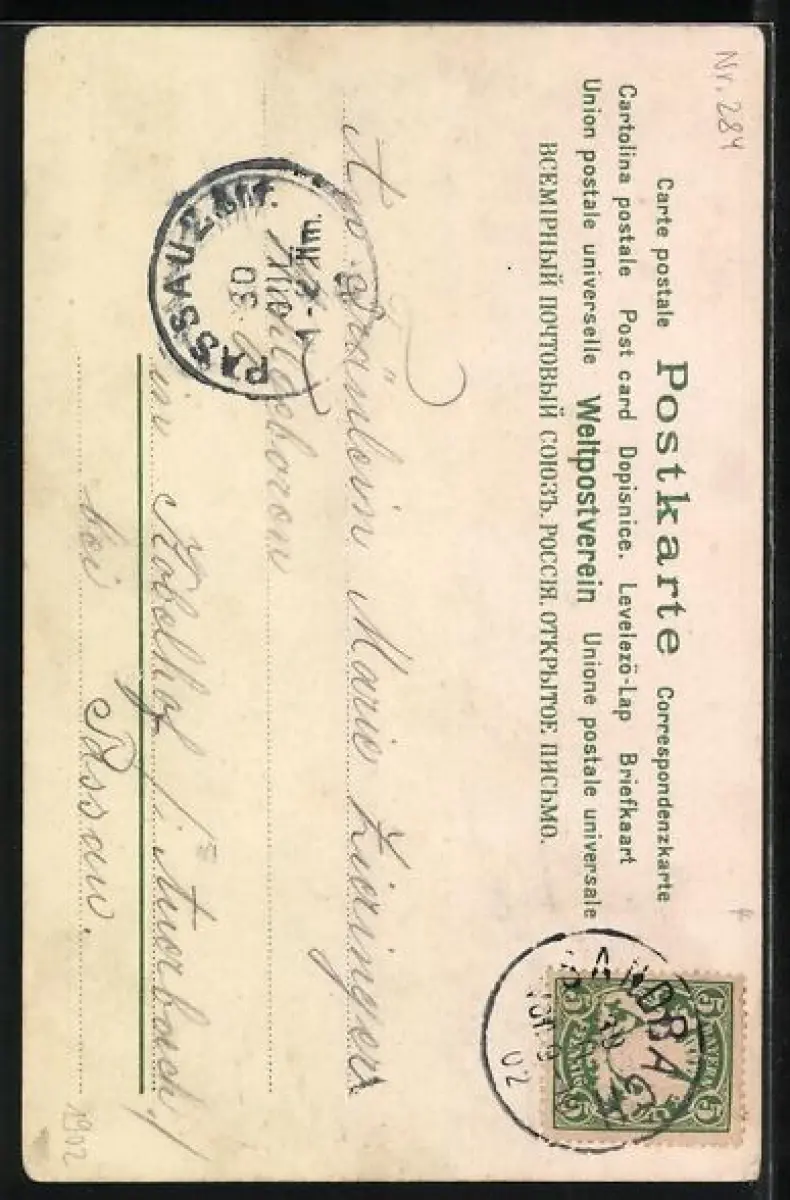 Nr. 284
Carte postale Postkarte Correspondenzkarte
Cartolina postale Post card Dopisnice. Levelező-Lap Briefkaart
Union postale universelle Weltpostverein Unione postale universale
ВСЕМІРНЫЙ ПОЧТОВЫЙ СОЮЗЪ. РОССІЯ. ОТКРЫТОЕ ПИСЬМО.
5 5
5 5
02
An Fräulein Marie Zieringer
Wohlgeboren
PASSAU 2
30
1-2 Nm.
in Kobelhof /: Auerbach /
bei Passau.
1902